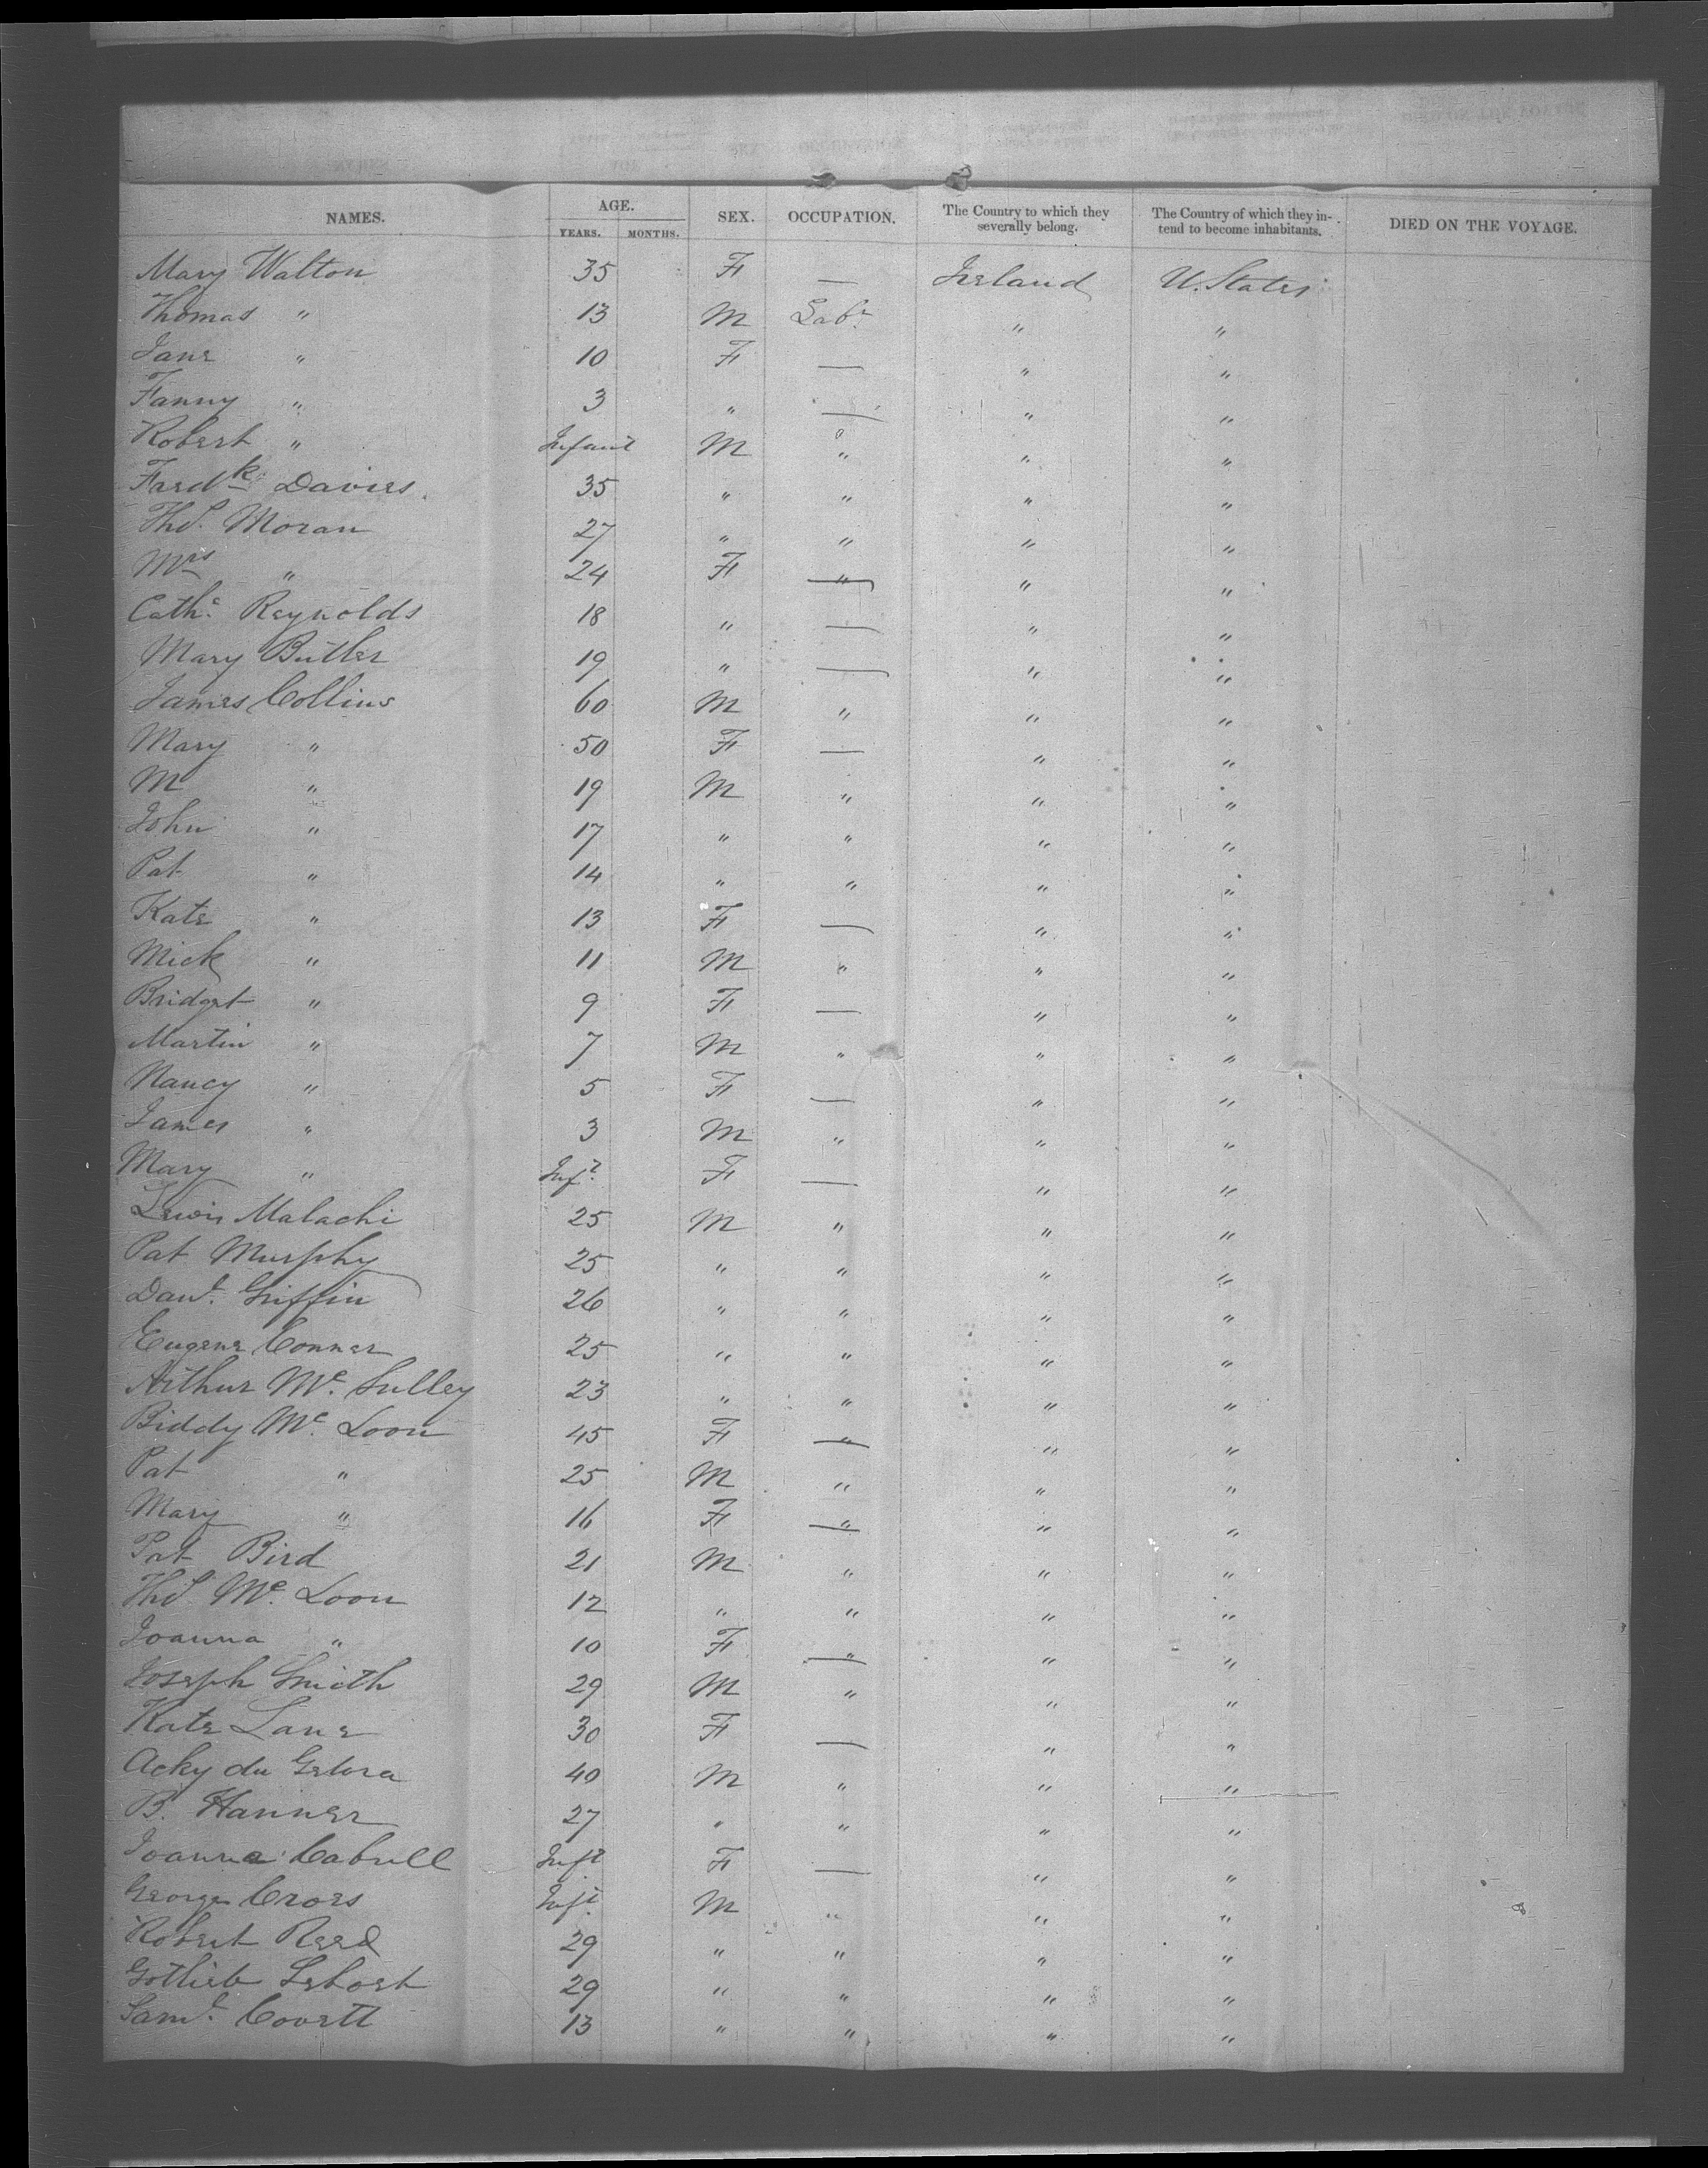 NAMES. AGE. SEX. OCCUPATION. The Country to which they severally belong. The Country of which they in-tend to become inhabitants. DIED ON THE VOYAGE.
YEARS. MONTHS.
Mary Walton 35 F — Ireland U. States
Thomas " 13 M Labr " "
Jane " 10 F — " "
Fanny " 3 " — " "
Robert " Infant M " " "
Fredk Davies 35 " " " "
Thos. Moran 27 " " " "
Mrs " 24 F " " "
Cathe Reynolds 18 " — " "
Mary Butler 19 " — " "
James Collins 60 M " " "
Mary " 50 F — " "
M " 19 M " " "
John " 17 " " " "
Pat " 14 " " " "
Kate " 13 F — " "
Mick " 11 M " " "
Bridget " 9 F — " "
Martin " 7 M " " "
Nancy " 5 F — " "
James " 3 M " " "
Mary " Inft. F — " "
Lewis Malachi 25 M " " "
Pat Murphy 25 " " " "
Danl. Griffin 26 " " " "
Eugene Conner 25 " " " "
Arthur Mc. Sulley 23 " " " "
Biddy Mc. Loon 45 F " " "
Pat " 25 M " " "
Mary " 16 F " " "
Pat Bird 21 M " " "
Thos. Mc. Loon 12 " " " "
Joanna " 10 F " " "
Joseph Smith 29 M " " "
Kate Lane 30 F — " "
Acky du 40 M " " "
B. Hanner 27 " " " "
Joanna Cabull Inft F — " "
George Cross Inft. M " " "
Robert Reed 29 " " " "
Gotlieb 29 " " " "
Saml. Covett 13 " " " "